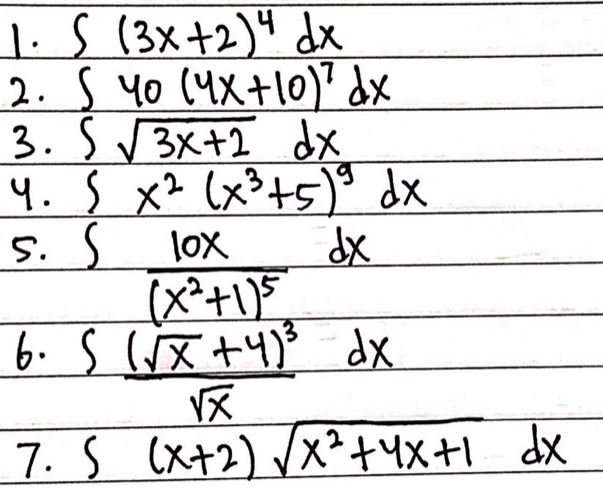 1. ∫ (3x+2)⁴ dx
2. ∫ 40 (4x+10)⁷ dx
3. ∫ √(3x+2) dx
4. ∫ x² (x³+5)⁹ dx
5. ∫ 10x/(x²+1)⁵ dx
6. ∫ (√x+4)³/√x dx
7. ∫ (x+2) √(x²+4x+1) dx